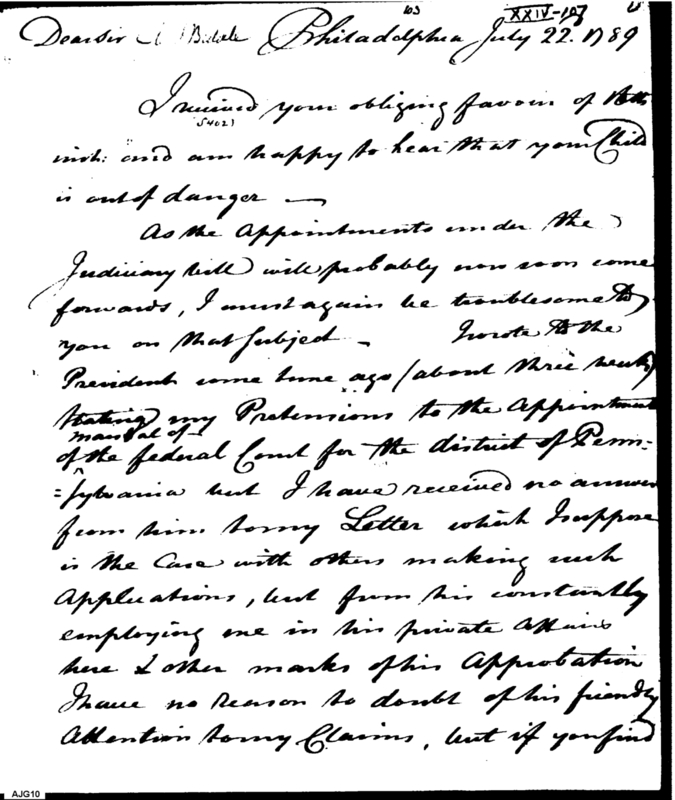 103 XXIV-107
Dear Sir C Biddle Philadelphia July 22. 1789
I received your obliging favour of
5402)
inst: and am happy to hear that your Child
is out of danger —
As the Appointments under the
Judiciary bill will probably now soon come
forwards, I must again be troublesome to
you on that Subject - I wrote to the
President some time ago (about three weeks)
stating my Pretensions to the Appointment
marshal of
of the federal Court for the district of Penn-
=sylvania but I have received no answer
from him to my Letter which I suppose
is the Case with others making such
Applications, but from his constantly
employing me in his private Affairs
here & other marks of his Approbation
I have no Reason to doubt of his friendly
Attention to my Claims, but if you find
AJG10